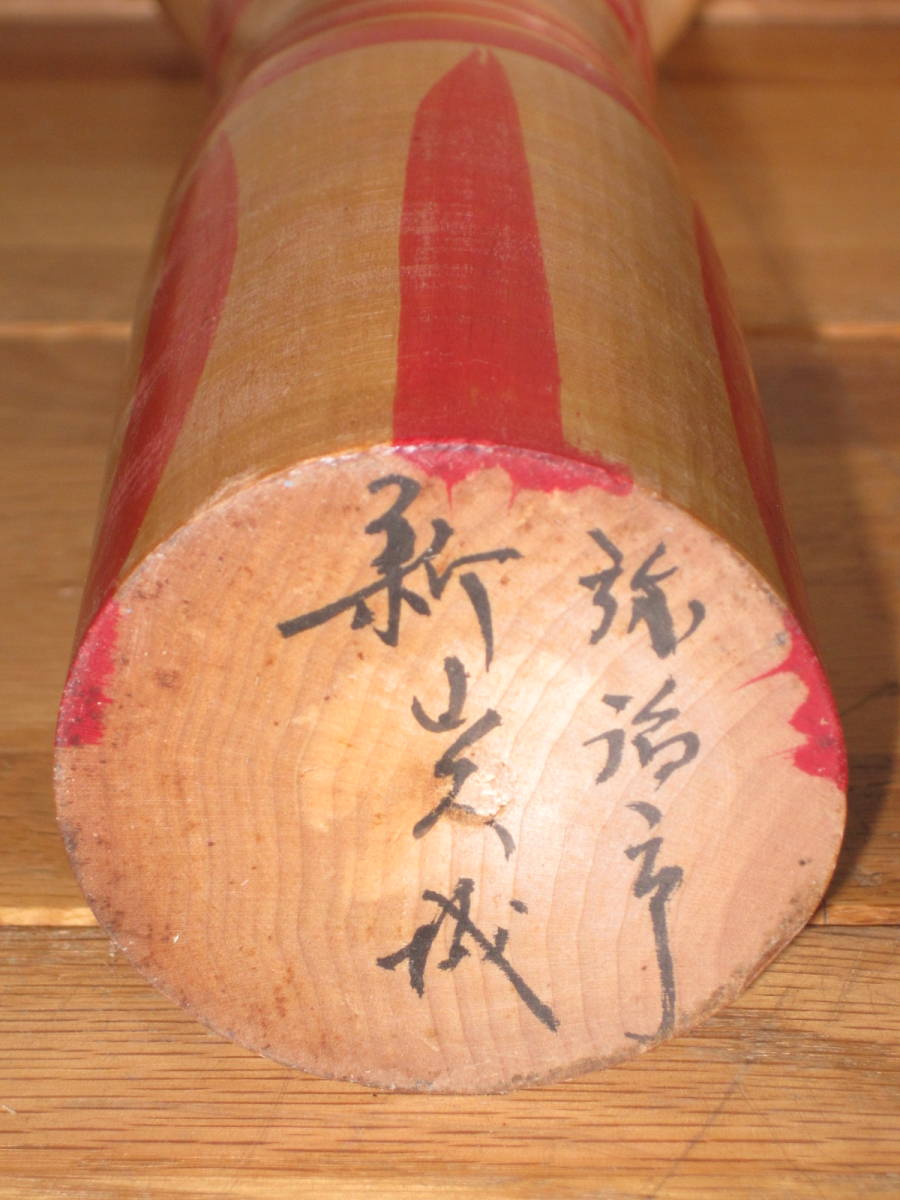 弥治郎
新山久城